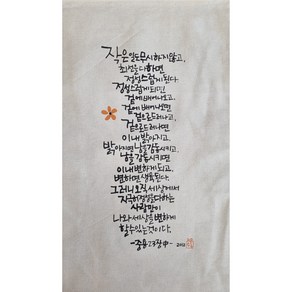 작은 일도 무시하지 않고,
최선을 다하면
정성스럽게 된다
정성스럽게 되면
겉에 배어나오고.
겉에 배어나면
겉으로 드러나고,
겉으로 드러나면
이내 밝아지고.
밝아지면 남을 감동시키고
남을 감동시키면
이내 변하게 되고.
변하면 생육된다.
그러니 오직 세상에서
지극히 정성을 다하는
사람만이
나와 세상을 변하게
할 수 있는 것이다.
-중용 23장 中-